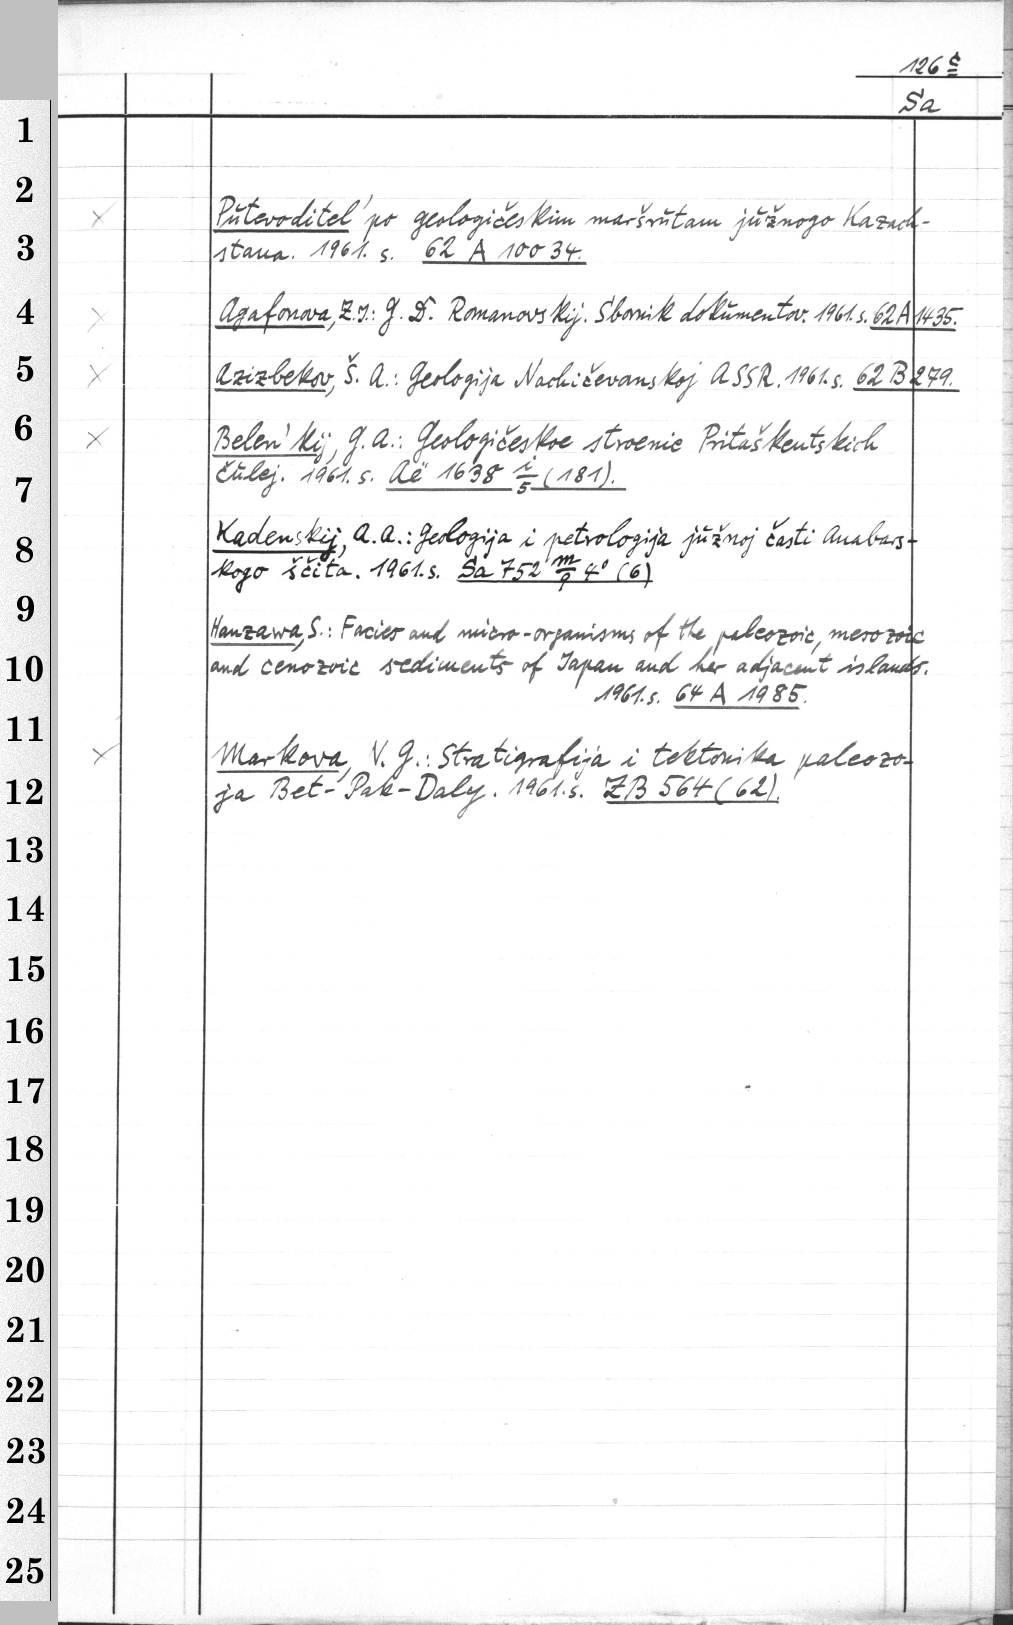 126 c
Sa
1
2
Putevoditel' po geologičeskim maršrutam južnogo Kazach-
3
stana. 1961. s. 62 A 10034.
4
Agafonova, Z. J.: G. D. Romanovskij. Sbornik dokumentov. 1961. s. 62 A 1435.
5
Azizbekov, Š. A.: Geologija Nachičevanskoj ASSR. 1961. s. 62 B 279.
6
Belen'kij, G. A.: Geologičeskoe stroenie Pritaškentskich
7
čulej. 1961. s. Aë 1638 i/5 (181).
8
Kadenskij, A. A.: Geologija i petrologija južnoj časti Anabars-
kogo ščita. 1961. s. Sa 752 m/9 4° (6)
9
Hanzawa, S.: Facies and micro-organisms of the paleozoic, mesozoic
10
and cenozoic sediments of Japan and her adjacent islands.
1961. s. 64 A 1985.
11
Markova, N. G.: Stratigrafija i tektonika paleozo-
12
ja Bet-Pak-Daly. 1961. s. ZB 564 (62).
13
14
15
16
17
18
19
20
21
22
23
24
25